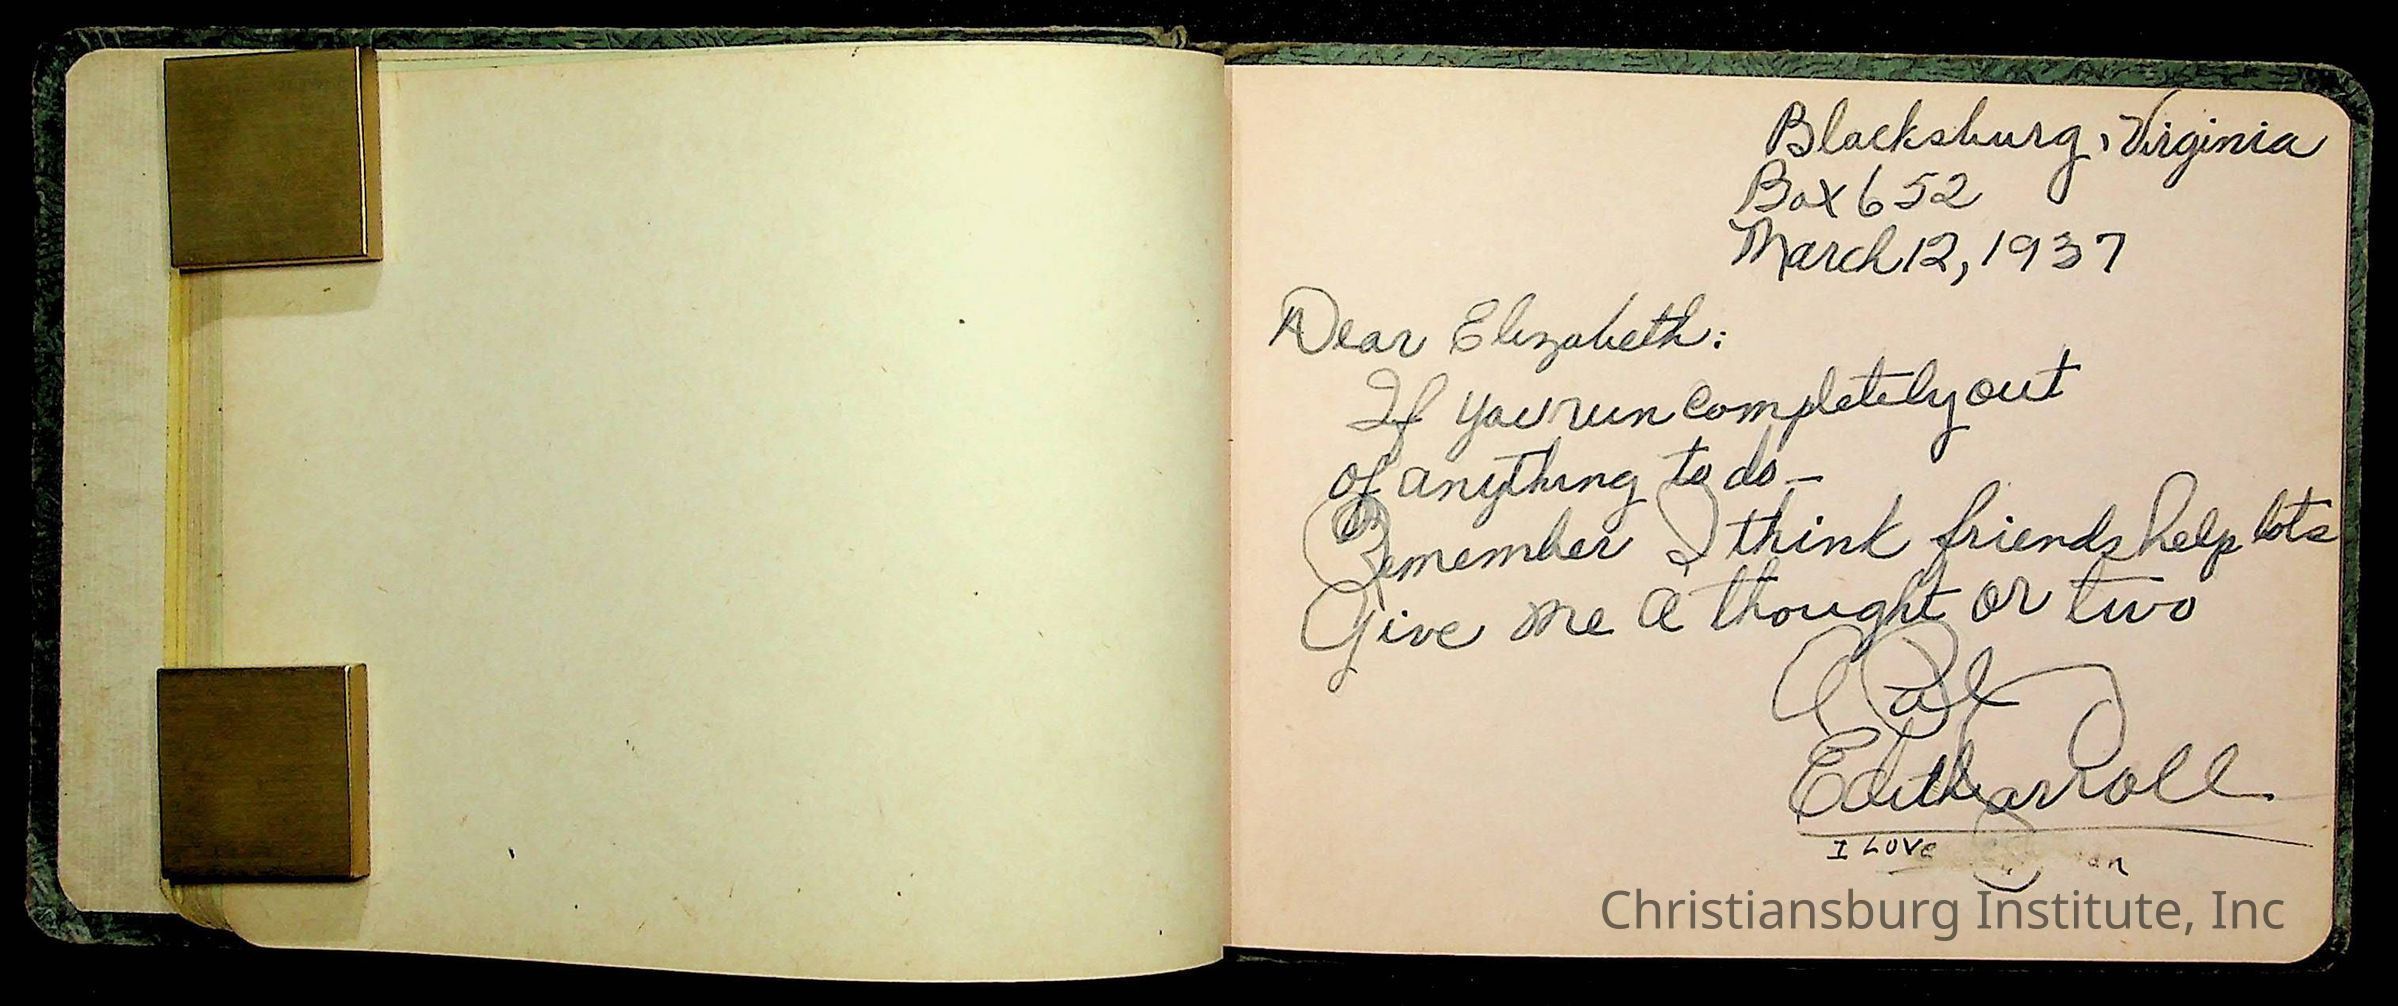 Blacksburg, Virginia
Box 652
March 12, 1937
Dear Elizabeth:
If you run completely out
of anything to do—
Remember I think friends help lots
Give me a thought or two
A Pal
Edith Carroll
I LOVE
Christiansburg Institute, Inc